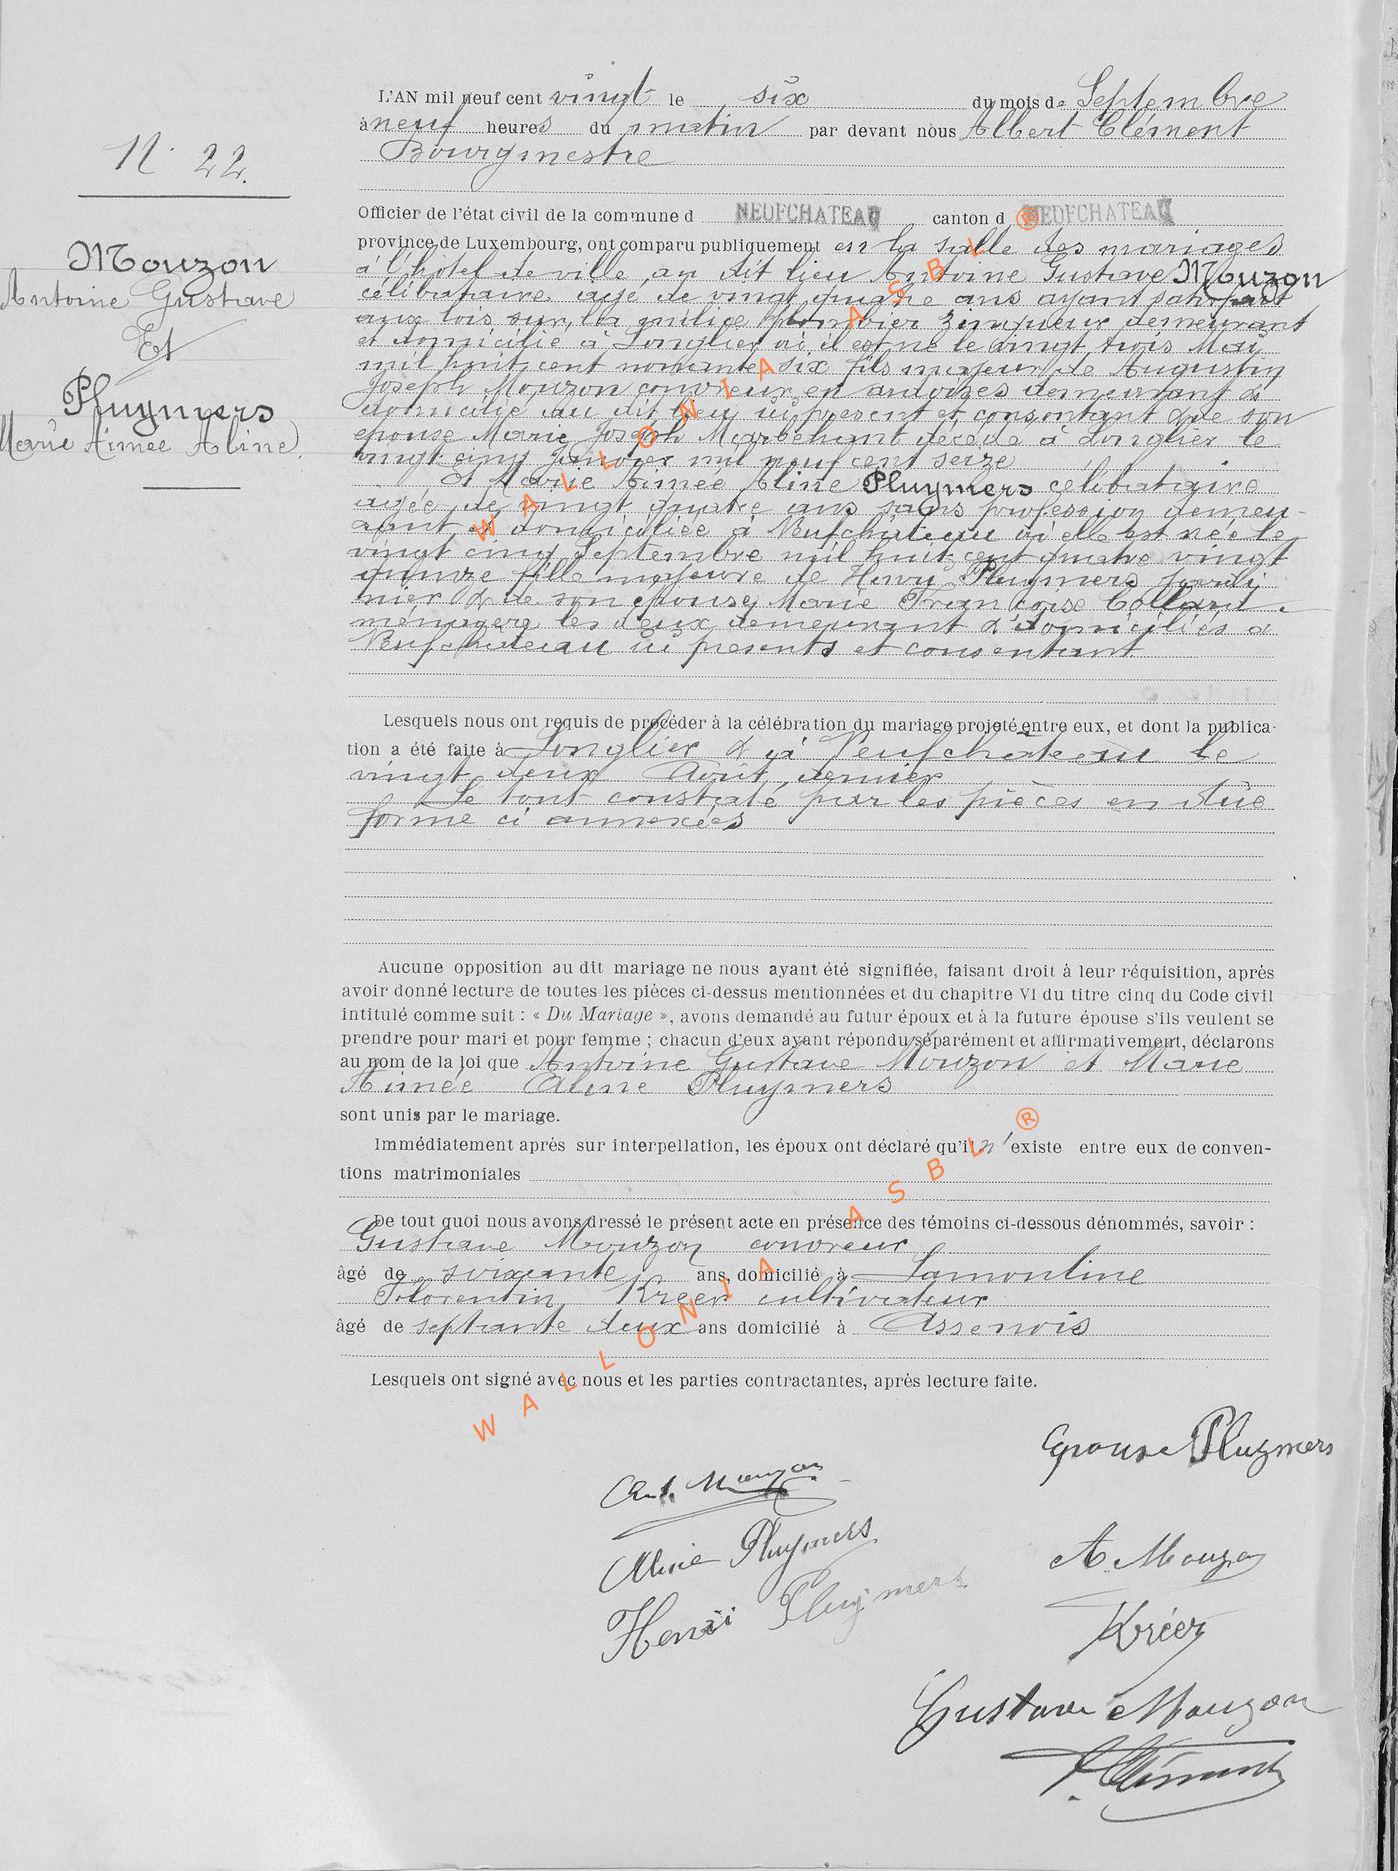 N° 22.
Mouzon
Antoine Gustave
Et
Pluymers
Marie Aimée Aline
L'AN mil neuf cent vingt le six du mois de Septembre
à neuf heures du matin par devant nous Albert Clément
Bourgmestre
Officier de l'état civil de la commune d NEUFCHATEAU canton d NEUFCHATEAU
province de Luxembourg, ont comparu publiquement en la salle des mariages
à l'hôtel de ville, au dit lieu Antoine Gustave Mouzon
célibataire agé de vingt quatre ans ayant satisfait
aux lois sur la milice plombier zingueur demeurant
et domicilié à Longlier où il est né le vingt trois Mai
mil huit cent nonante six fils majeur de Augustin
Joseph Mouzon couvreur en ardoises demeurant &
domicilié au dit lieu ici présent et consentant & de son
épouse Marie Joseph Marbehant décédé à Longlier le
vingt cinq Janvier mil neuf cent seize
Et Marie Aimée Aline Pluymers célibataire
agée de vingt quatre ans sans profession demeu-
rant et domiciliée à Neufchâteau où elle est née le
vingt cinq Septembre mil huit cent quatre vingt
quinze fille majeure de Henri Pluymers jardi
nier & de son épouse Marie Françoise Collard
ménagère les deux demeurant & domiciliés à
Neufchâteau ici présents et consentant
Lesquels nous ont requis de procéder à la célébration du mariage projeté entre eux, et dont la publica-
tion a été faite à Longlier & à Neufchâteau le
vingt deux Août dernier
Le tout constaté par les pièces en dûe
forme ci annexées
Aucune opposition au dit mariage ne nous ayant été signifiée, faisant droit à leur réquisition, après
avoir donné lecture de toutes les pièces ci-dessus mentionnées et du chapitre VI du titre cinq du Code civil
intitulé comme suit : « Du Mariage », avons demandé au futur époux et à la future épouse s'ils veulent se
prendre pour mari et pour femme ; chacun d'eux ayant répondu séparément et affirmativement, déclarons
au nom de la loi que Antoine Gustave Mouzon et Marie
Aimée Aline Pluymers
sont unis par le mariage.
Immédiatement après sur interpellation, les époux ont déclaré qu'il n'existe entre eux de conven-
tions matrimoniales
De tout quoi nous avons dressé le présent acte en présence des témoins ci-dessous dénommés, savoir :
Gustave Mouzon couvreur
âgé de soixante ans, domicilié à Lamouline
Florentin Kréer cultivateur
âgé de septante deux ans domicilié à Assenois
Lesquels ont signé avec nous et les parties contractantes, après lecture faite.
Epouse Pluymers
Ant. Mouzon
Aline Pluymers
A. Mouzon
Henri Pluymers
Kréer
Gustave Mouzon
A. Clément
WALLONIA ASBL ®
WALLONIA ASBL ®